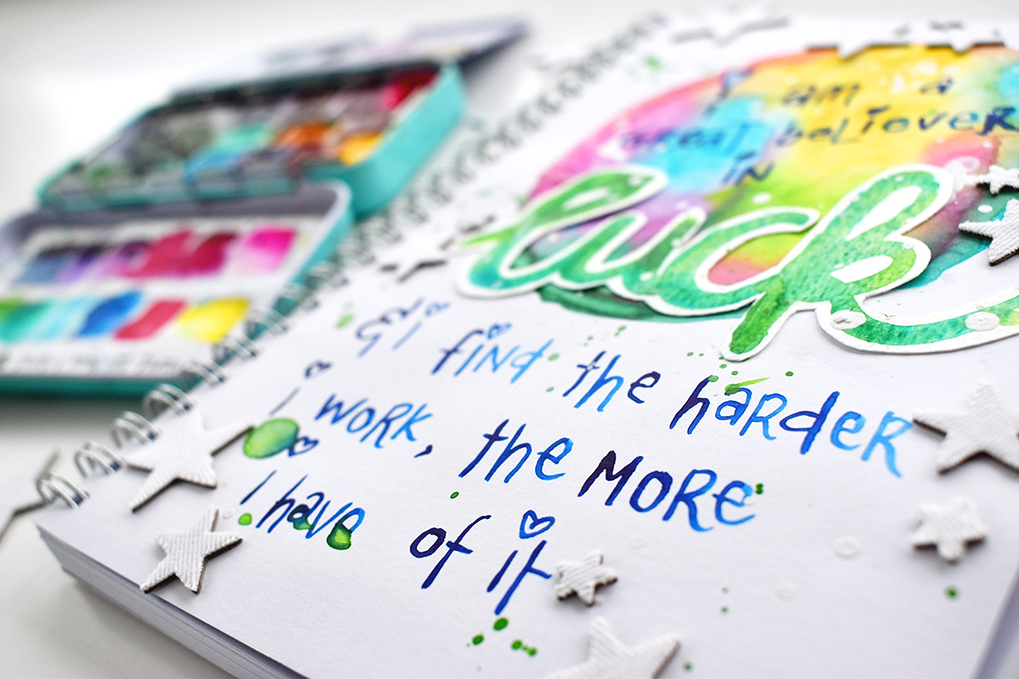 I am a
great believer
in
luck
and I find the harder
I work, the MORE
I have of it